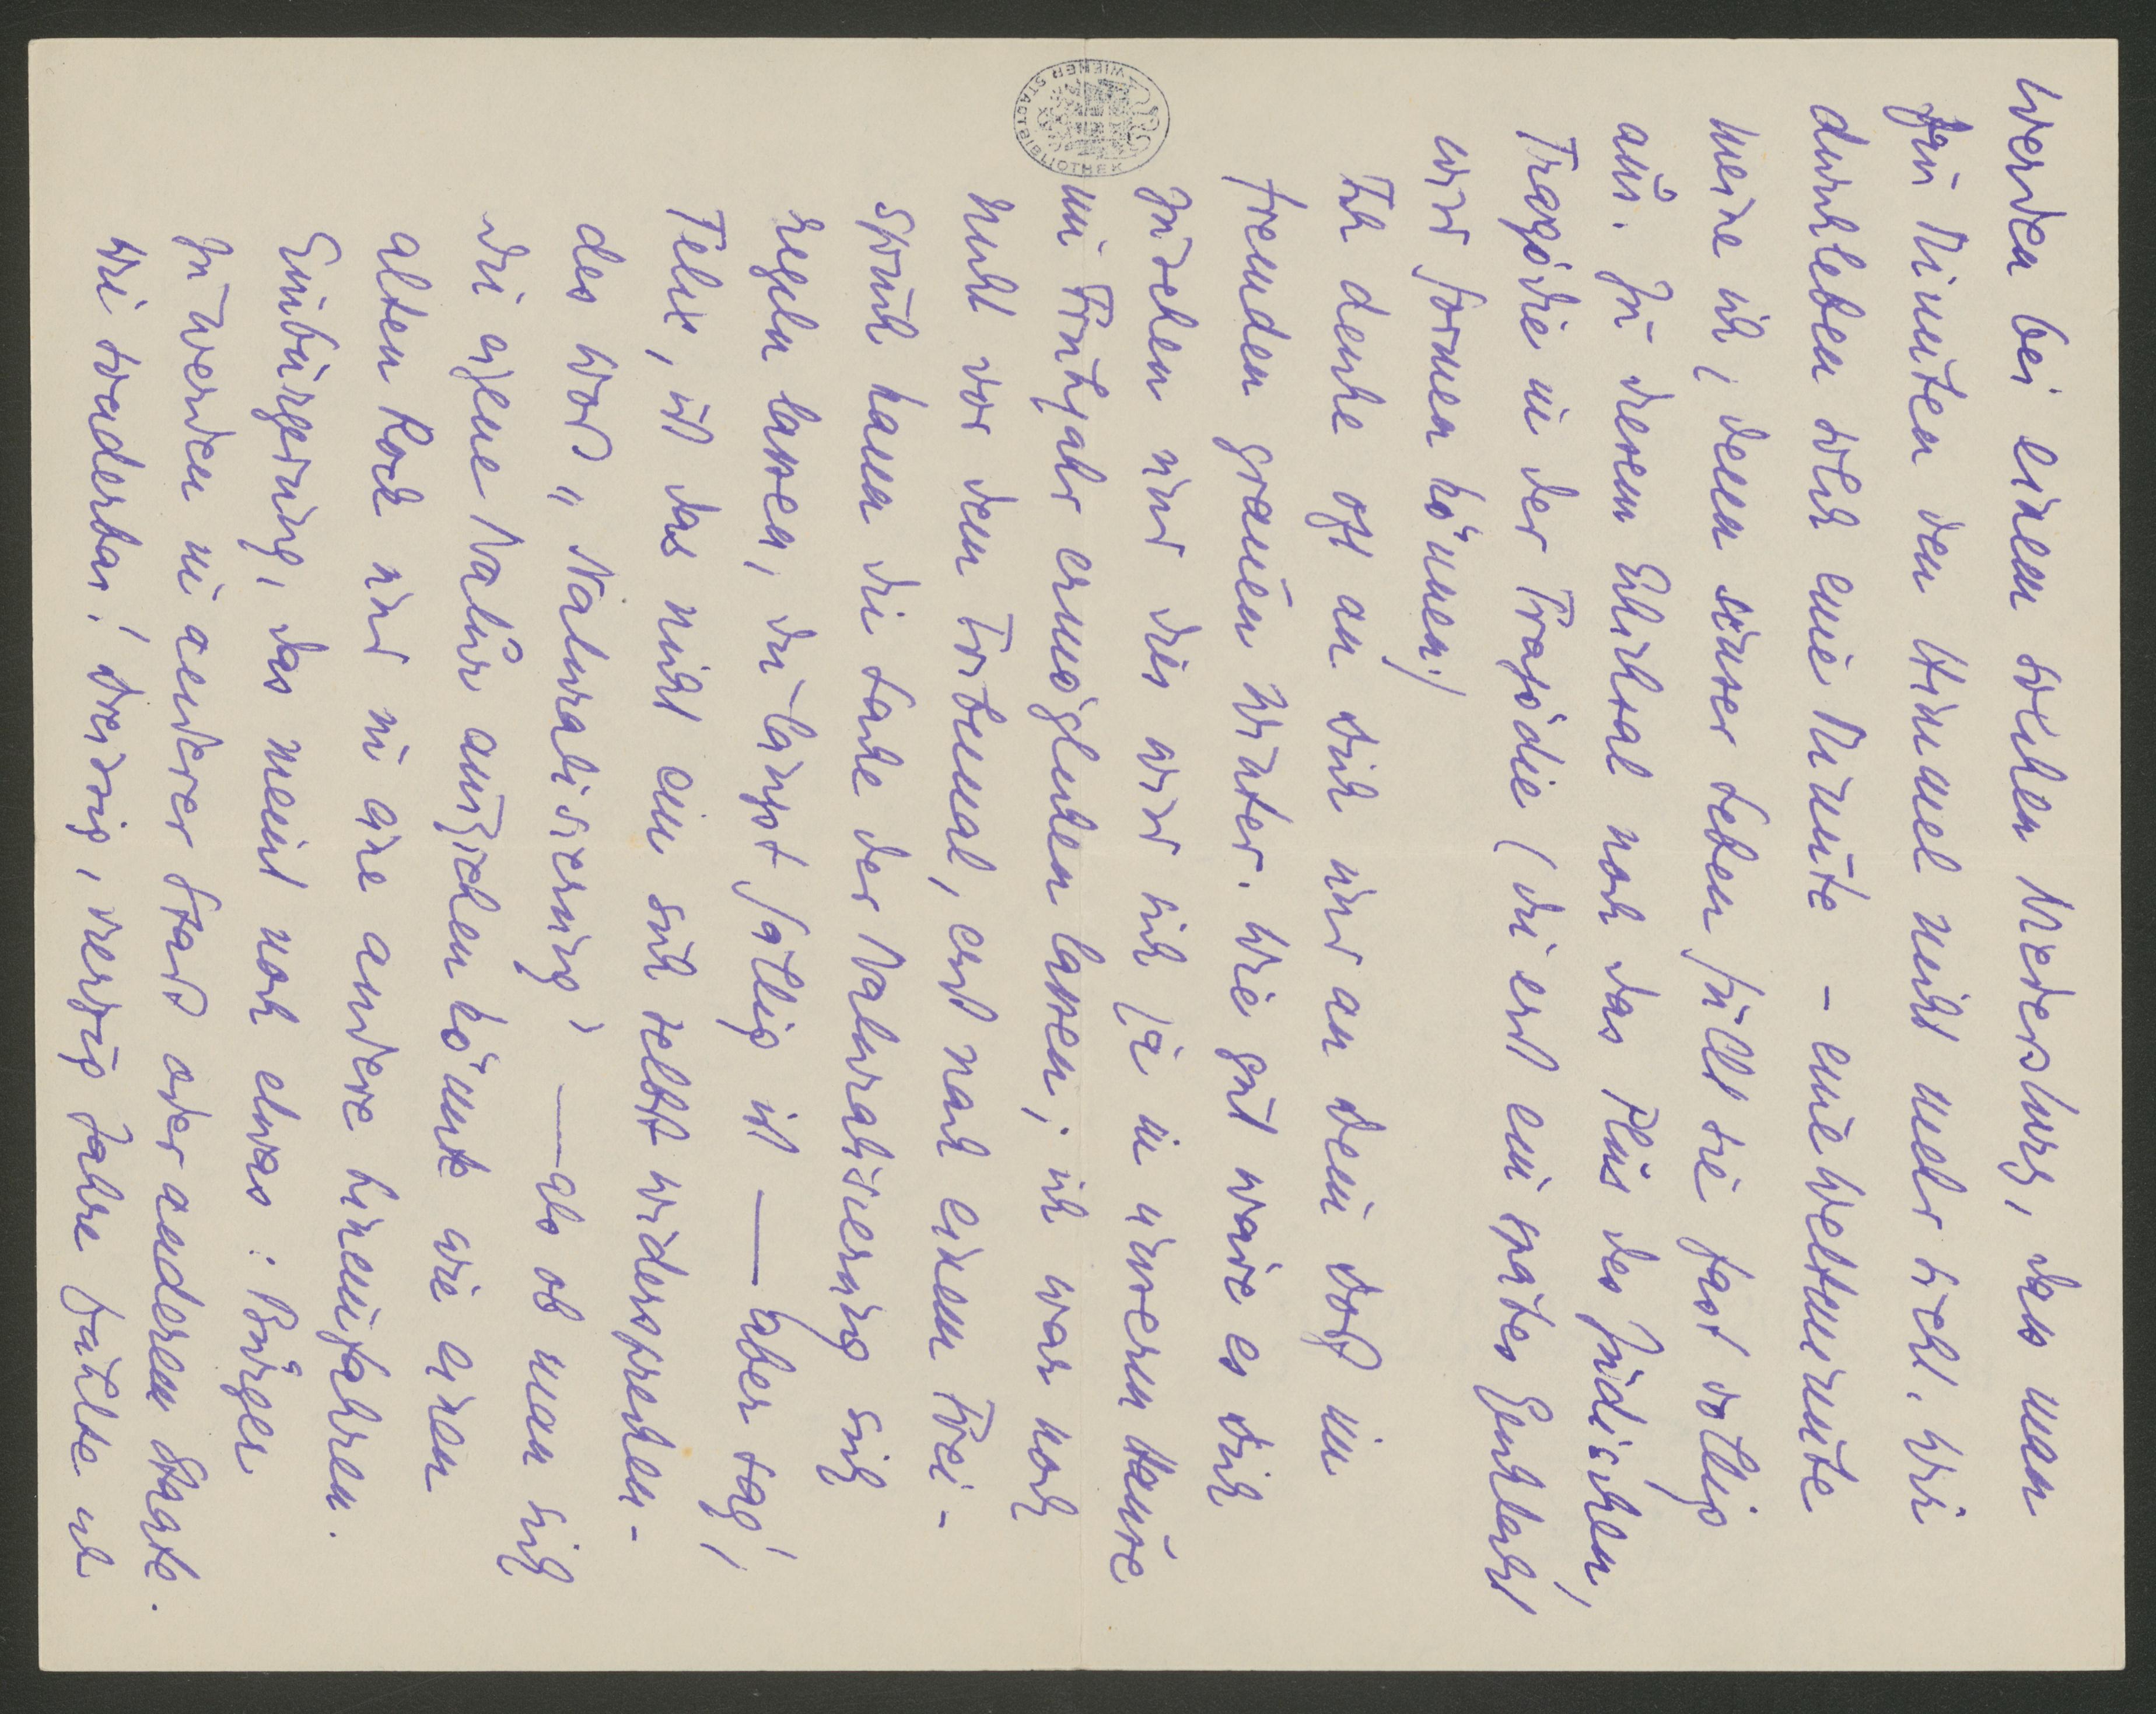 werden bei einem solchen Niedersturz, dass man
für Minuten den Himmel nicht mehr sieht. Wir
durchleben solch eine Minute – eine Weltminute
meine ich, denn unser Leben füllt sie fast völlig
aus. Zu diesem Schicksal noch das Plus des jüdischen,
Tragödie in der Tragödie (die erst ein spätes Geschlecht
wird formen können!)
Ich denke oft an dich und an dein dort im
fremden grauen Winter. Wie gut wäre es dich
zusehen und dies wird sich ja in unserm Hause
im Frühjahr ermöglichen lassen; ich war noch
nicht vor dem Tribunal, erst nach einem Frei-
spruch kann die Sache der Naturalisierung sich
regeln lassen, die längst fällig ist — aber sag!
Felix, ist das nicht ein sich selbst widersprechen-
des Wort „Naturalisierung“ — als ob man sich
die eigene Natur ausziehen könnte wie einen
alten Rock und in eine andere hineinfahren.
Einbürgerung, das meint noch etwas: Bürger
zu werden in anderer Stadt oder anderem Staate.
Wie sonderbar! dreissig, vierzig Jahre fühlte ich
WIENER STADTBIBLIOTHEK